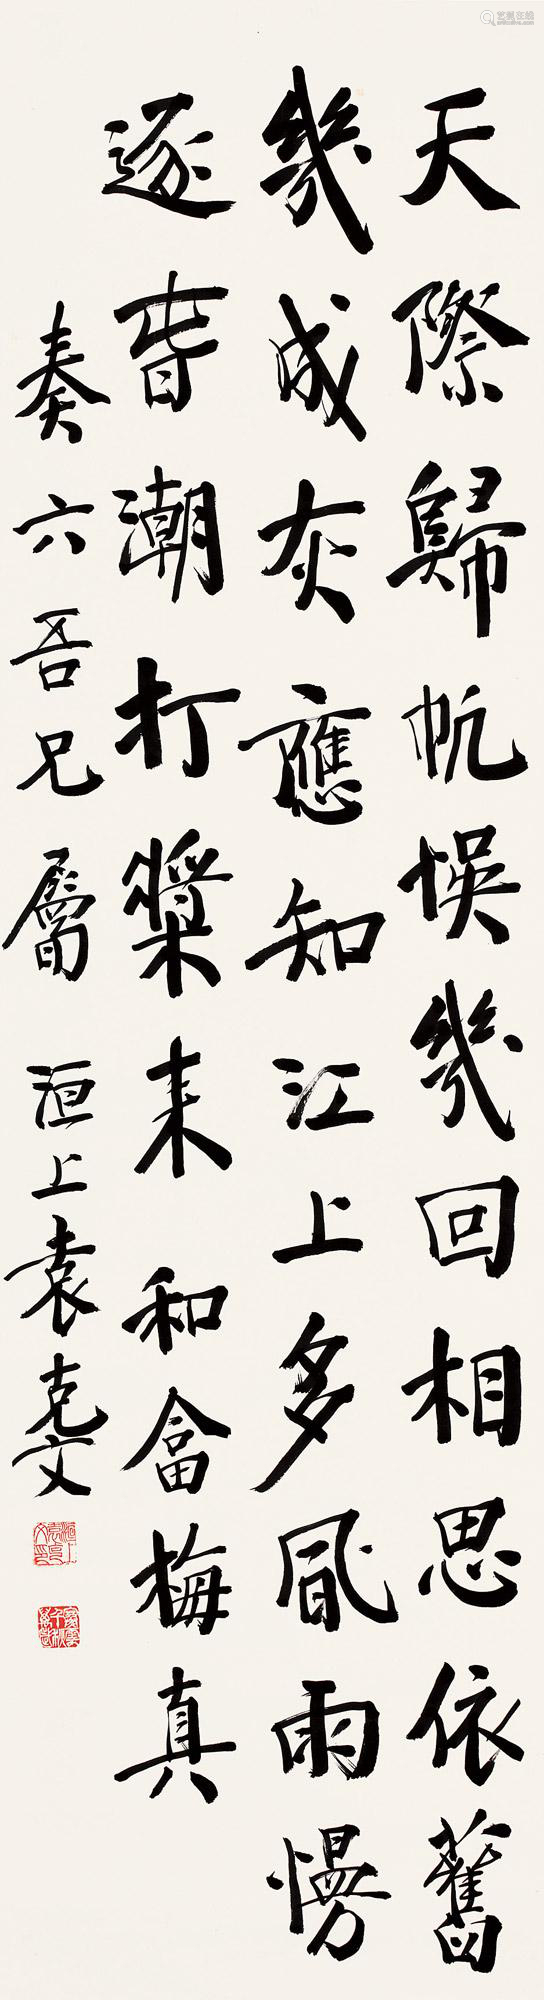 天際歸帆悞幾回相思依舊
幾成灰應知江上多風雨慢
逐春潮打槳来 和畣梅真
奏六吾兄屬 洹上袁克文